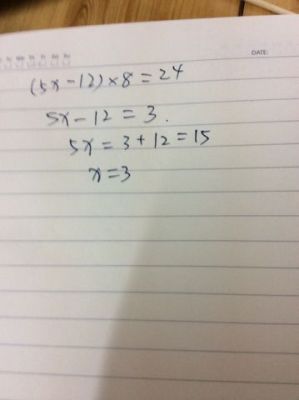 DATE:
(5x-12)×8=24
5x-12=3.
5x=3+12=15
x=3